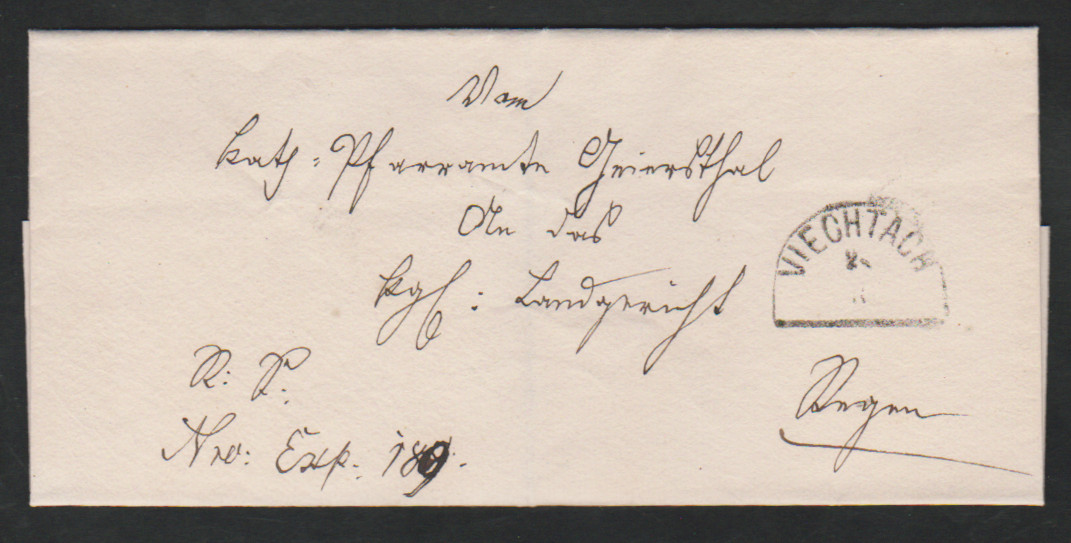 Vom
kath: Pfarramte Geiersthal
An das
kgl: Landgericht
VIECHTACH
R: S.
Regen
Nro: Exp. 189.